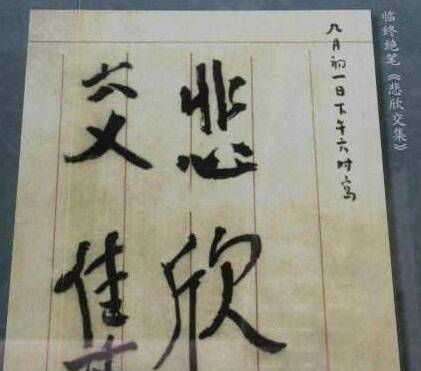 临终绝笔《悲欣交集》
九月初一日下午六时写
悲欣
交集